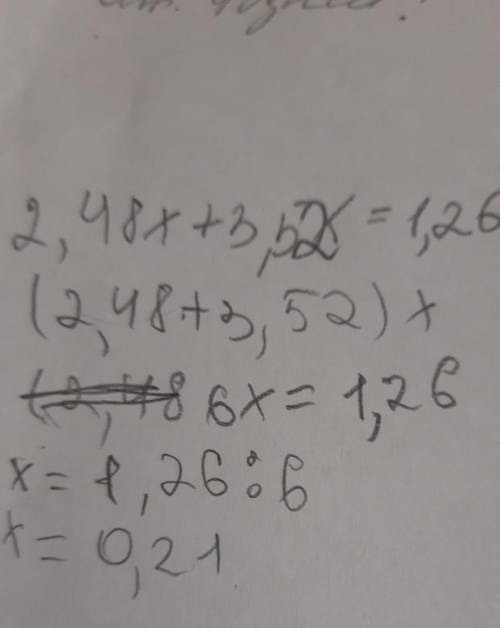 2,48x+3,52x=1,26
(2,48+3,52)x
6x=1,26
x=1,26:6
x=0,21